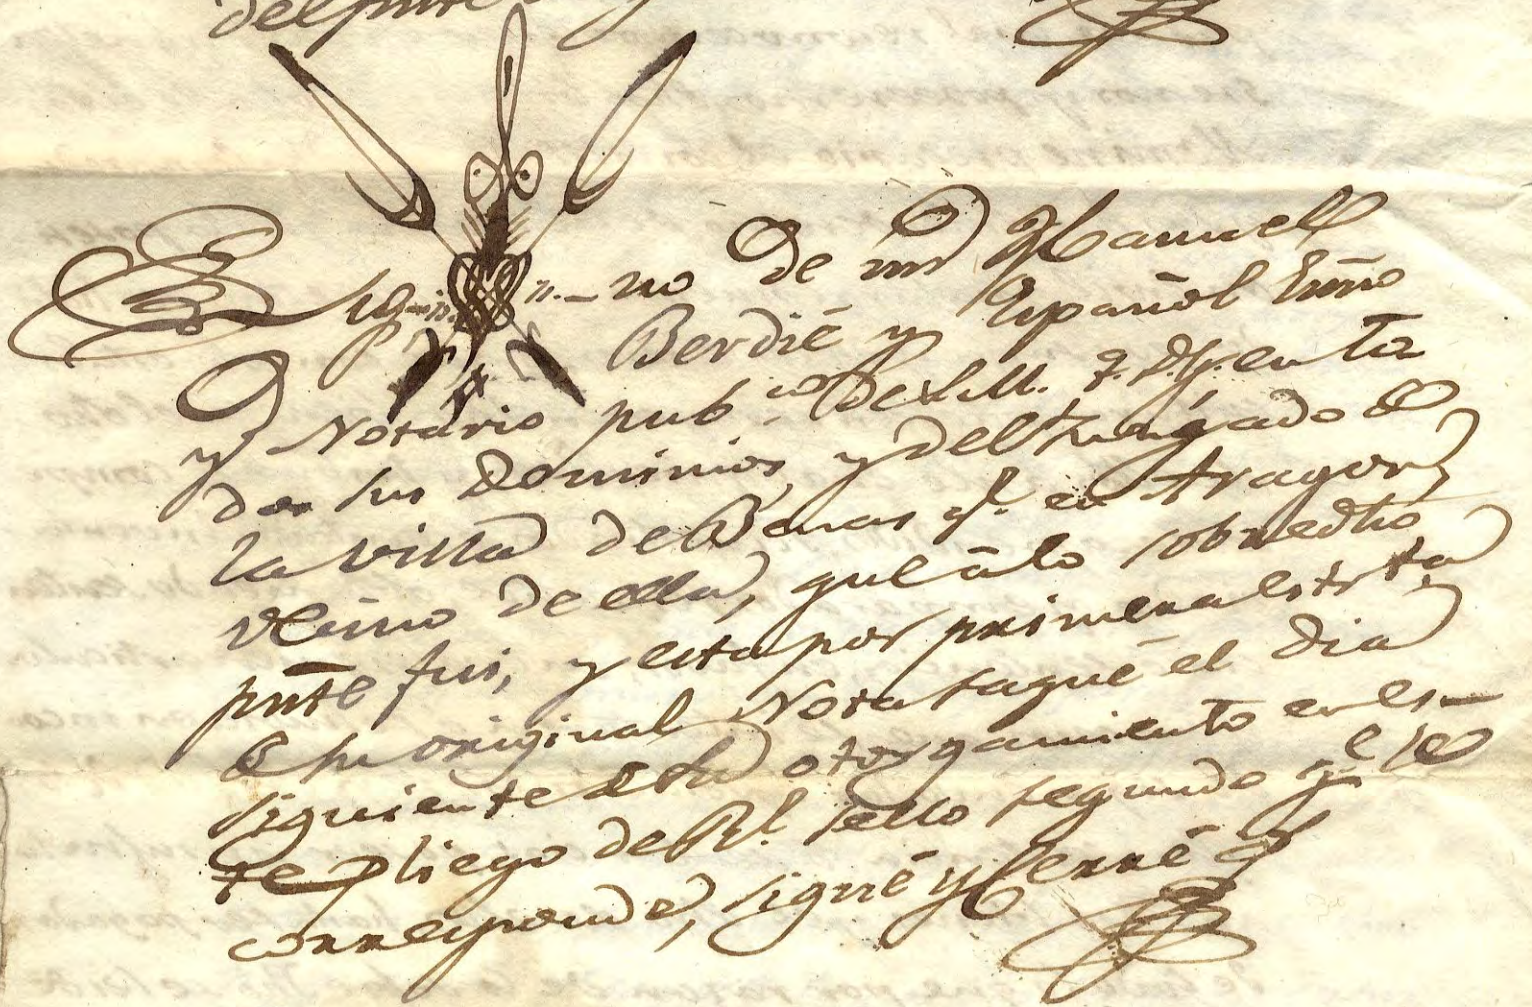 del pnte
Sig-n.-no de mi Manuel
Berdié y Español Esno
y Notario pubco. de S.M. q. D. g. en to
dos sus Dominios, y del Juzgado de
la villa de Benas qe. en Aragon,
vecino de ella, que á lo sobredho
pnte fui, y esta por primera estrta
de su original Nota saqué el dia
siguiente de su otorgamiento en es-
te pliego de Rl. sello segundo qe le
corresponde, signé y cerré